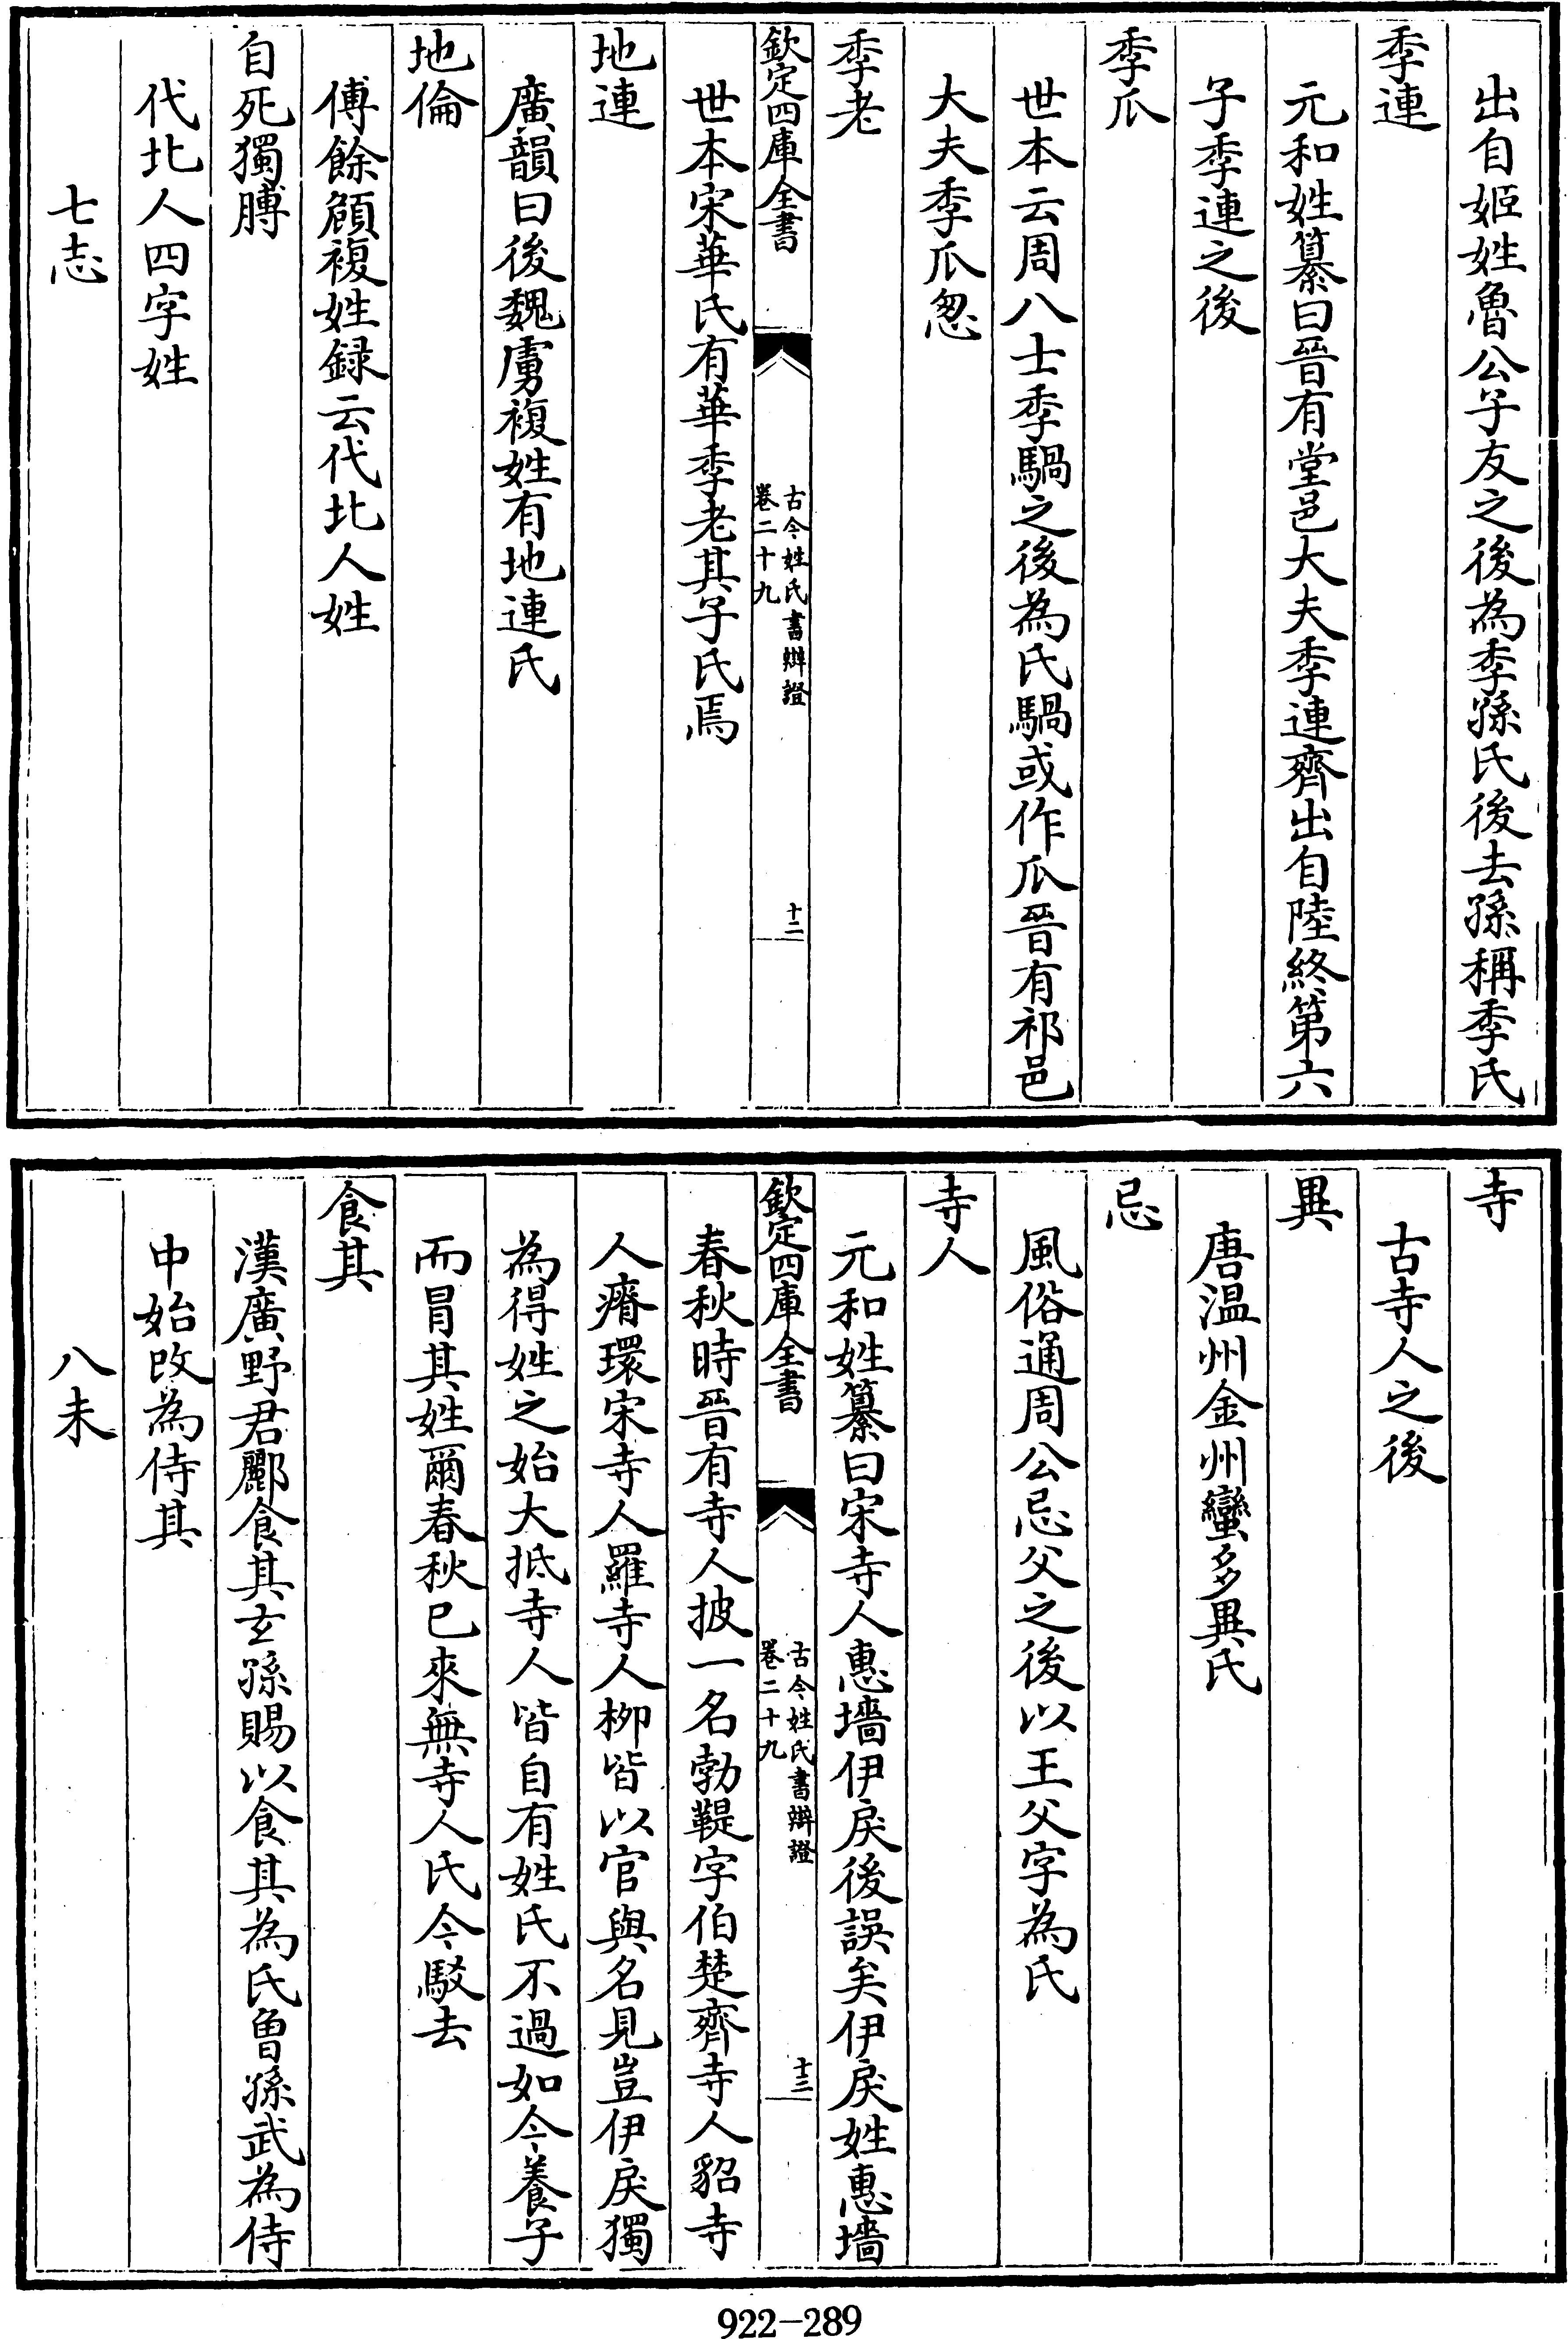 出自姬姓魯公子友之後為季孫氏後去孫稱季氏
季連
元和姓纂曰晉有堂邑大夫季連齊出自陸終第六
子季連之後
季瓜
世本云周八士季騧之後為氏騧或作瓜晉有祁邑
大夫季瓜忽
季老
欽定四庫全書
古今姓氏書辯證
卷二十九
十二
世本宋華氏有華季老其子氏焉
地連
廣韻曰後魏虜複姓有地連氏
地倫
傅餘頠複姓録云代北人姓
自死獨膊
代北人四字姓
七志
寺
古寺人之後
異
唐温州金州蠻多異氏
忌
風俗通周公忌父之後以王父字為氏
寺人
元和姓纂曰宋寺人惠墻伊戾後誤矣伊戾姓惠墻
欽定四庫全書
古今姓氏書辯證
卷二十九
十三
春秋時晉有寺人披一名勃鞮字伯楚齊寺人貂寺
人瘠環宋寺人羅寺人柳皆以官與名見豈伊戾獨
為得姓之始大抵寺人皆自有姓氏不過如今養子
而冒其姓爾春秋已來無寺人氏今駁去
食其
漢廣野君酈食其玄孫賜以食其為氏曾孫武為侍
中始改為侍其
八未
922-289